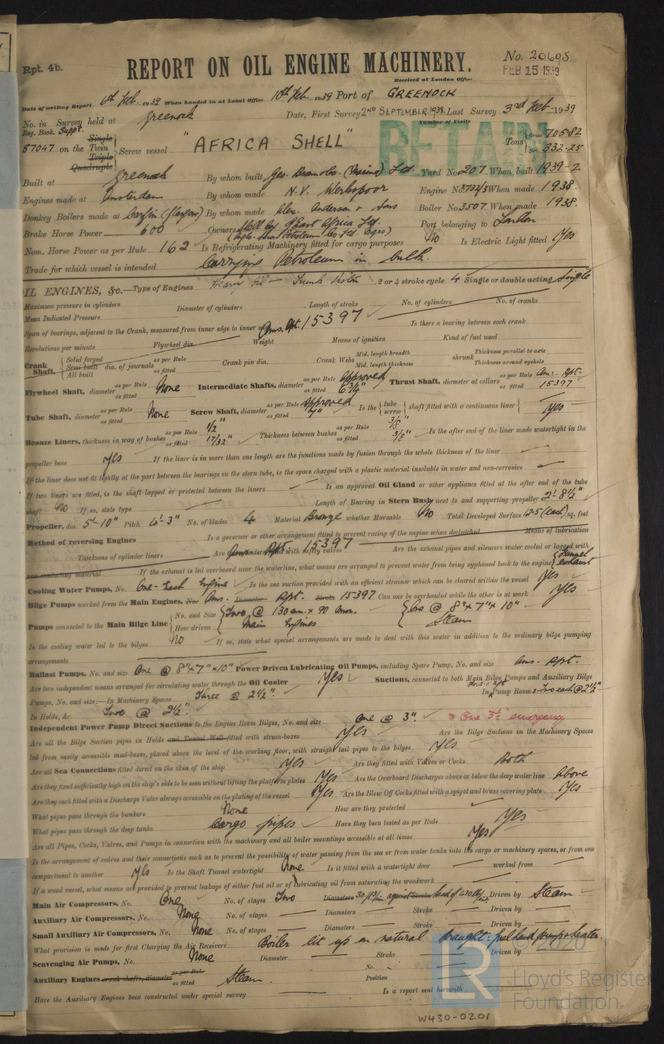 Rpt. 4b.
REPORT ON OIL ENGINE MACHINERY.
No. 20605
Received at London Office FEB 15 1939
Date of writing Report 6th Feb. 1939 When handed in at Local Office 10th Feb. 1939 Port of GREENOCK
No. in Reg. Book. Survey held at Greenock Date, First Survey 2ND SEPTEMBER 1938 Last Survey 3rd Feb. 1939
Number of Visits
RETAIN
Supt. 87047 on the Single Twin Triple Quadruple Screw vessel "AFRICA SHELL" Tons
Built at Greenock By whom built Geo. Brown & Co. (Marine) Ltd Yard No. 207 When built 1939-2
Engines made at Amsterdam By whom made N.V. Werkspoor Engine No. When made 1938
Donkey Boilers made at By whom made Alex. Anderson & Sons Boiler No. 3507 When made 1938.
Brake Horse Power 600 Owners Shell Co of East Africa Ltd Port belonging to London
Nom. Horse Power as per Rule 162 Is Refrigerating Machinery fitted for cargo purposes No Is Electric Light fitted Yes
Trade for which vessel is intended Carrying Petroleum in bulk.
OIL ENGINES, &c.—Type of Engines Heavy oil - Trunk Piston 2 or 4 stroke cycle 4 Single or double acting Single
Maximum pressure in cylinders Diameter of cylinders Length of stroke No. of cylinders No. of cranks
Mean Indicated Pressure Ams. Rpt. 15397
Span of bearings, adjacent to the Crank, measured from inner edge to inner edge Is there a bearing between each crank
Revolutions per minute Flywheel dia. Weight Means of ignition Kind of fuel used
Crank Shaft, Solid forged Semi built All built dia. of journals as per Rule as fitted Crank pin dia. Crank Webs Mid. length breadth Mid. length thickness shrunk Thickness parallel to axis Thickness around eyehole
Flywheel Shaft, diameter as per Rule as fitted None Intermediate Shafts, diameter as per Rule Approved as fitted 6 3/4" Thrust Shaft, diameter at collars as per Rule as fitted Ams. Rpt. 15397
Tube Shaft, diameter as per Rule as fitted None Screw Shaft, diameter as per Rule Approved as fitted 7" Is the tube screw shaft fitted with a continuous liner Yes
Bronze Liners, thickness in way of bushes as per Rule 1/2" as fitted 17/32" Thickness between bushes as per Rule 3/8" as fitted 3/8" Is the after end of the liner made watertight in the
propeller boss Yes If the liner is in more than one length are the junctions made by fusion through the whole thickness of the liner
If the liner does not fit tightly at the part between the bearings in the stern tube, is the space charged with a plastic material insoluble in water and non-corrosive
If two liners are fitted, is the shaft lapped or protected between the liners Is an approved Oil Gland or other appliance fitted at the after end of the tube
shaft No If so, state type Length of Bearing in Stern Bush next to and supporting propeller 2'-8 1/2"
Propeller, dia. 5'-10" Pitch 4'-3" No. of blades 4 Material Bronze whether Moveable No Total Developed Surface sq. feet
Method of reversing Engines Is a governor or other arrangement fitted to prevent racing of the engine when declutched Means of lubrication
Ams. Rpt. 15397
Thickness of cylinder liners Are the cylinders fitted with safety valves Are the exhaust pipes and silencers water cooled or lagged with
non-conducting material If the exhaust is led overboard near the waterline, what means are arranged to prevent water being syphoned back to the engine Funnel exhaust
Cooling Water Pumps, No. One each Engine Is the sea suction provided with an efficient strainer which can be cleared within the vessel Yes
Bilge Pumps worked from the Main Engines, No. Ams. Diameter Rpt. Stroke 15397 Can one be overhauled while the other is at work Yes
Pumps connected to the Main Bilge Line No. and Size Two @ 130 mm. x 90 mm. One @ 8"x7"x10"
How driven Main Engines Steam
Is the cooling water led to the bilges No If so, state what special arrangements are made to deal with this water in addition to the ordinary bilge pumping
arrangements
Ballast Pumps, No. and size One @ 8"x7"x10" Power Driven Lubricating Oil Pumps, including Spare Pump, No. and size Ams. Rpt.
Are two independent means arranged for circulating water through the Oil Cooler Yes Suctions, connected to both Main Bilge Pumps and Auxiliary Bilge
Pumps, No. and size:—In Machinery Spaces Three @ 2 1/2". In Pump Room
In Holds, &c. Two @ 2 1/2".
Independent Power Pump Direct Suctions to the Engine Room Bilges, No. and size One @ 3". One 3 1/2" emergency
Are all the Bilge Suction pipes in Holds and Tunnel Well fitted with strum-boxes Yes Are the Bilge Suctions in the Machinery Spaces
led from easily accessible mud-boxes, placed above the level of the working floor, with straight tail pipes to the bilges Yes
Are all Sea Connections fitted direct on the skin of the ship Yes Are they fitted with Valves or Cocks Both
Are they fixed sufficiently high on the ship's side to be seen without lifting the platform plates Yes Are the Overboard Discharges above or below the deep water line Above
Are they each fitted with a Discharge Valve always accessible on the plating of the vessel Yes Are the Blow Off Cocks fitted with a spigot and brass covering plate Yes
What pipes pass through the bunkers None How are they protected
What pipes pass through the deep tanks Cargo pipes Have they been tested as per Rule Yes
Are all Pipes, Cocks, Valves, and Pumps in connection with the machinery and all boiler mountings accessible at all times Yes
Is the arrangement of valves and their connections such as to prevent the possibility of water passing from the sea or from water tanks into the cargo or machinery spaces, or from one
compartment to another Yes Is the Shaft Tunnel watertight None Is it fitted with a watertight door worked from
If a wood vessel, what means are provided to prevent leakage of either fuel oil or of lubricating oil from saturating the woodwork
Main Air Compressors, No. One No. of stages Two Diameters Stroke Driven by Steam
Auxiliary Air Compressors, No. None No. of stages Diameters Stroke Driven by
Small Auxiliary Air Compressors, No. None No. of stages Diameters Stroke Driven by
What provision is made for first Charging the Air Receivers Boiler lit up on natural draught:
Scavenging Air Pumps, No. None Diameter Stroke Driven by
Auxiliary Engines crank shafts, diameter as per Rule as fitted Steam No. Position
Have the Auxiliary Engines been constructed under special survey Is a report sent herewith
LR
© 2020
Lloyd's Register
Foundation
W430-0201